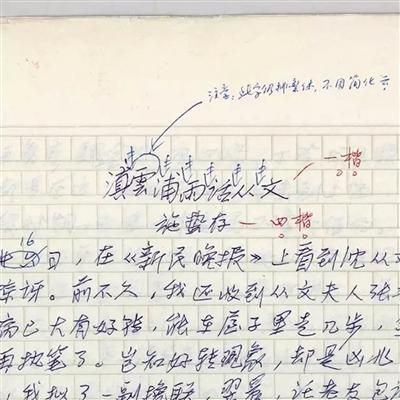 注意:此字仍排繁体,不用简化
滇雲浦雨话从文 一楷
施蛰存 四楷
16日,在《新民晚报》上看到沈从文
惊讶。前不久,我还收到从文夫人张
病已大有好转,能在屋子里走几步,
再执笔了。岂知好转现象,却是凶兆
我拟了一副挽联,翌晨,托老友包